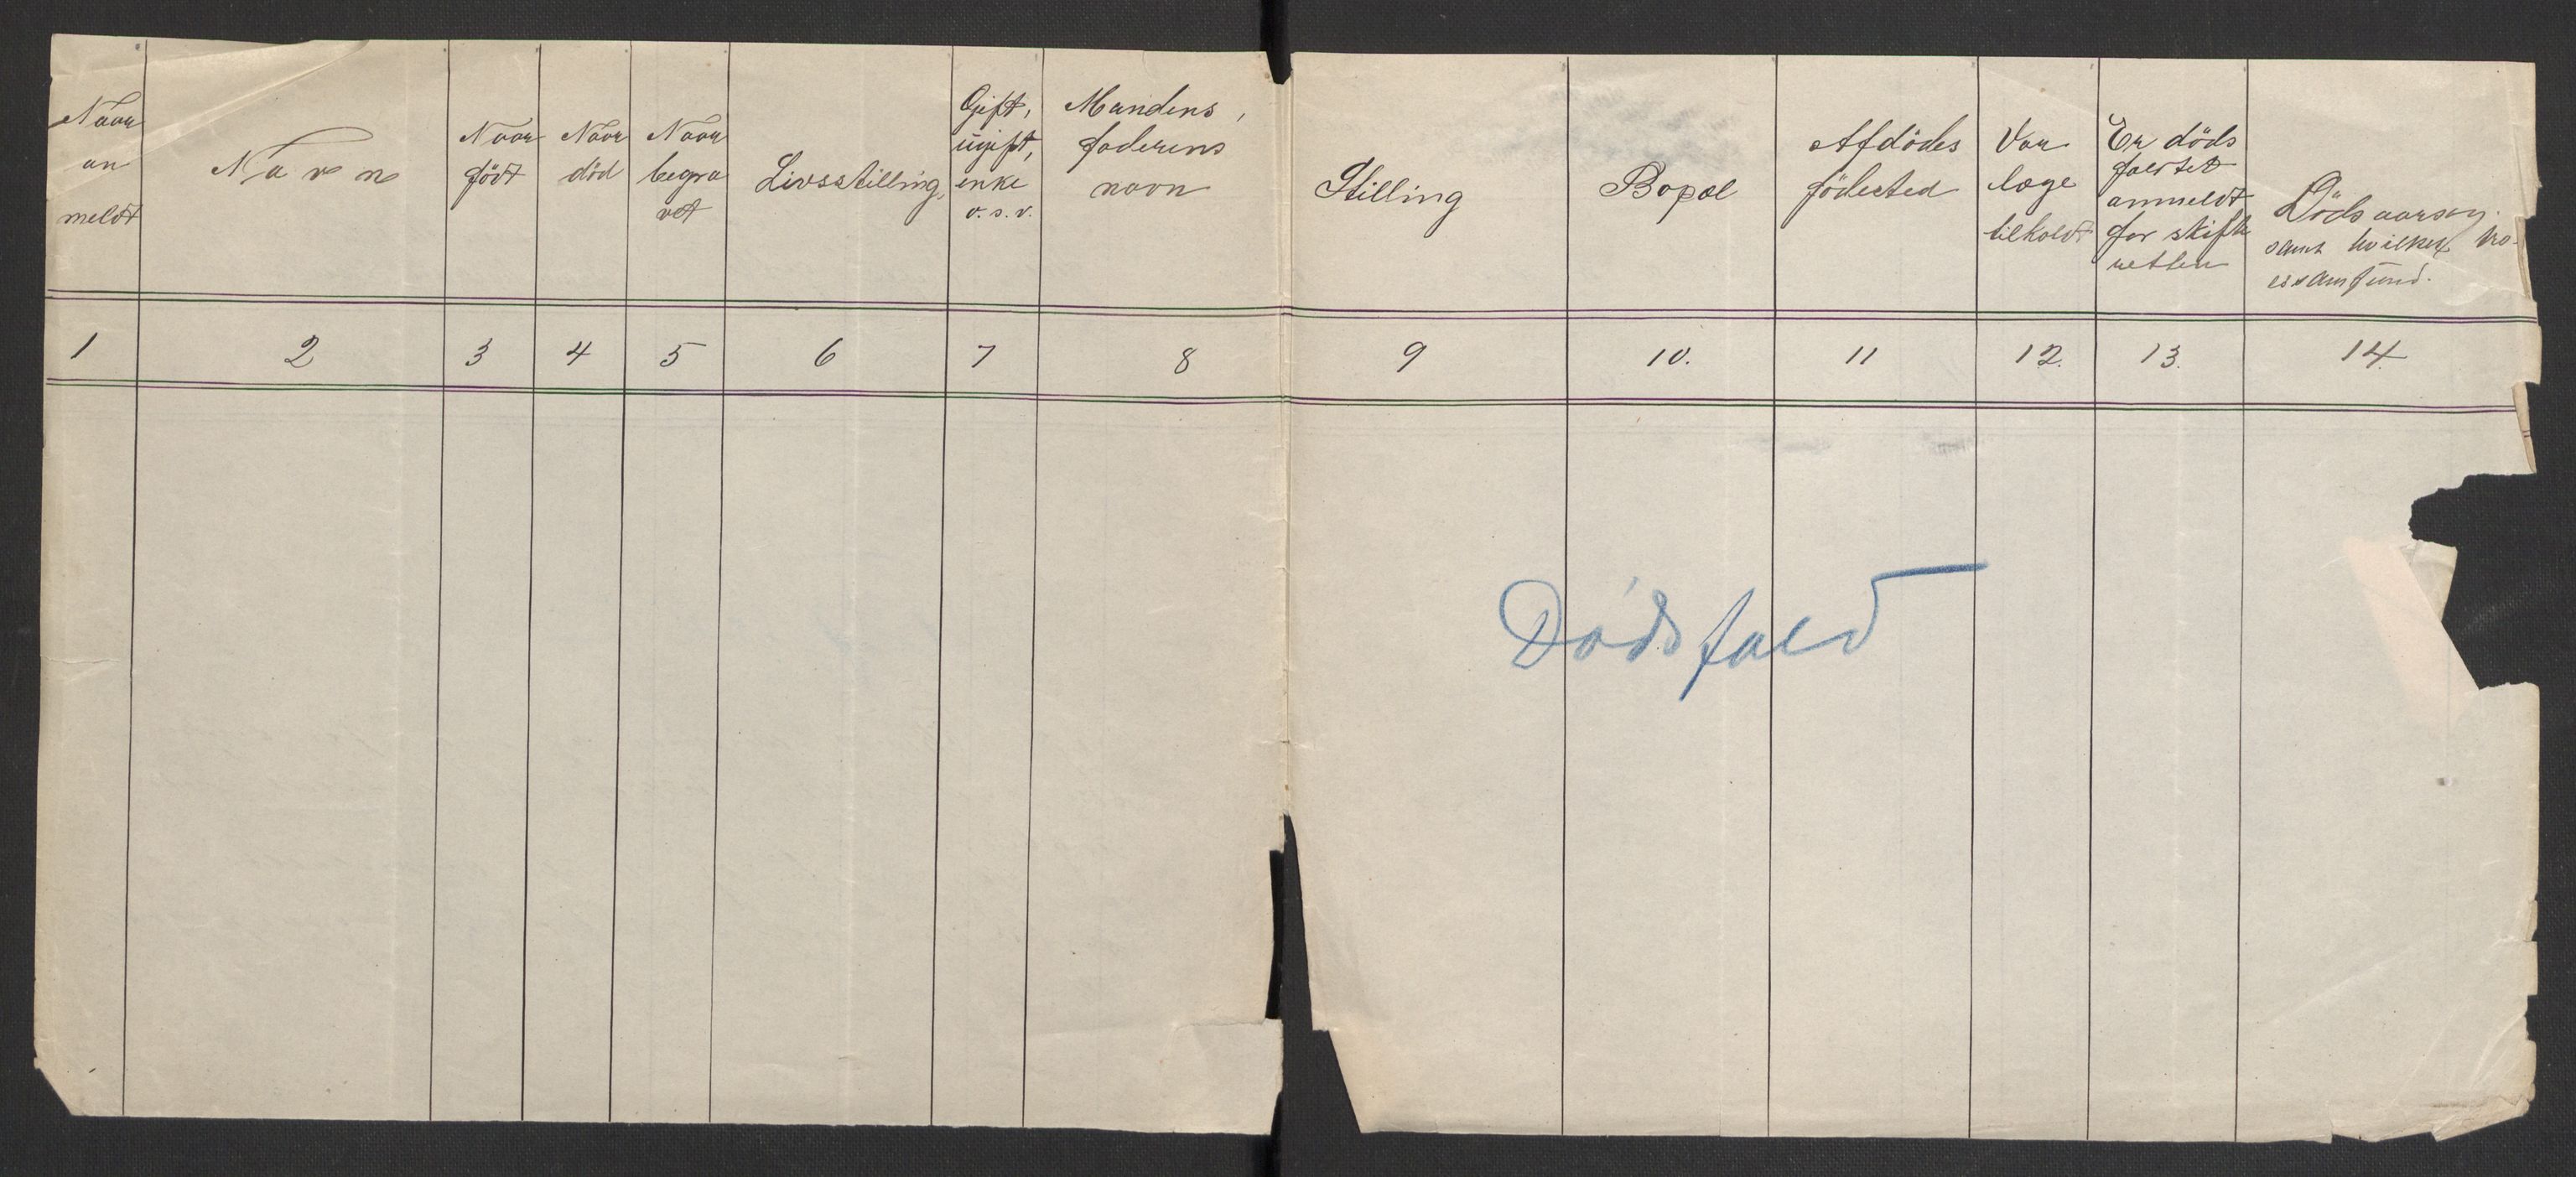 Naar
an
meldt
Navn
Naar
født
Naar
död
Naar
begra
vet
Livsstilling,
Gift,
ugift,
enke
o.s.v.
Mandens,
faderens
navn
Stilling
Bopæl
Afdödes
födested
Var
læge
tilkaldt
Er döds
faldet
anmeldt
for skifte
retten
Dödsaarsag.
samt hvilket tro-
essamfund.
1 2 3 4 5 6 7 8 9 10. 11 12. 13. 14.
Dødsfald